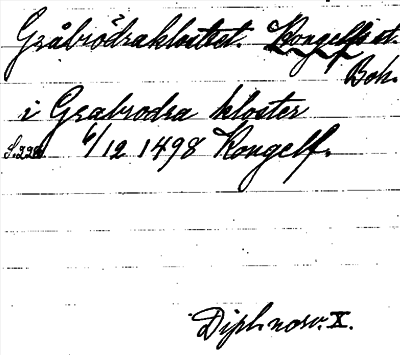 Gråbrödraklostret. Kongelfs st.
Boh.
i Grabrodra kloster
S. 228 6/12 1498 Kongelf.
Dipl. norv. X.